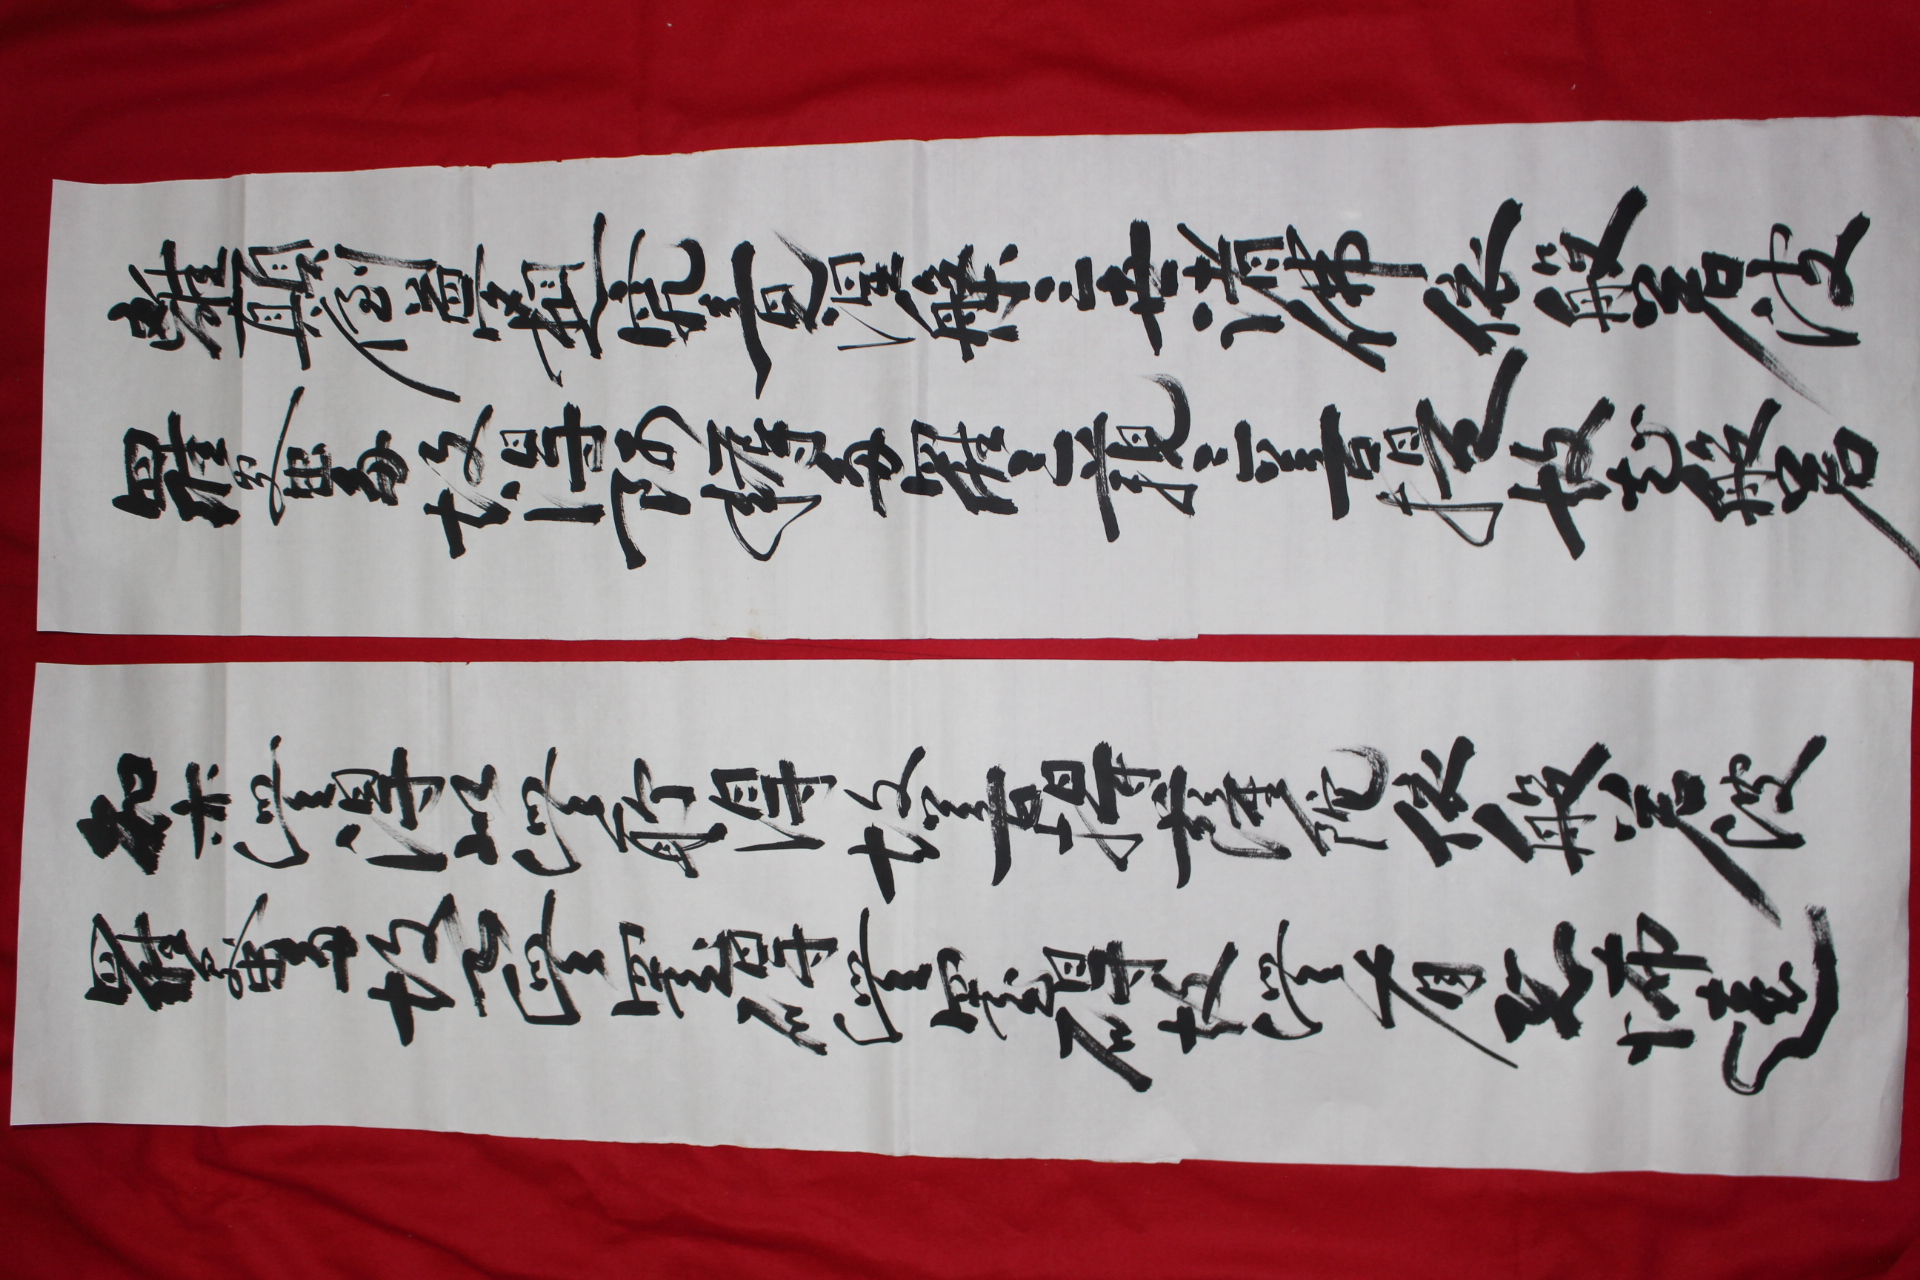 知亦無得以無所得故菩提薩陀依般若波
羅蜜多故心無罣碍無罣碍故無有恐怖遠
離顛倒夢想究竟涅槃三世諸佛依般若波
羅蜜多故得阿耨多羅三藐三菩提故知般若